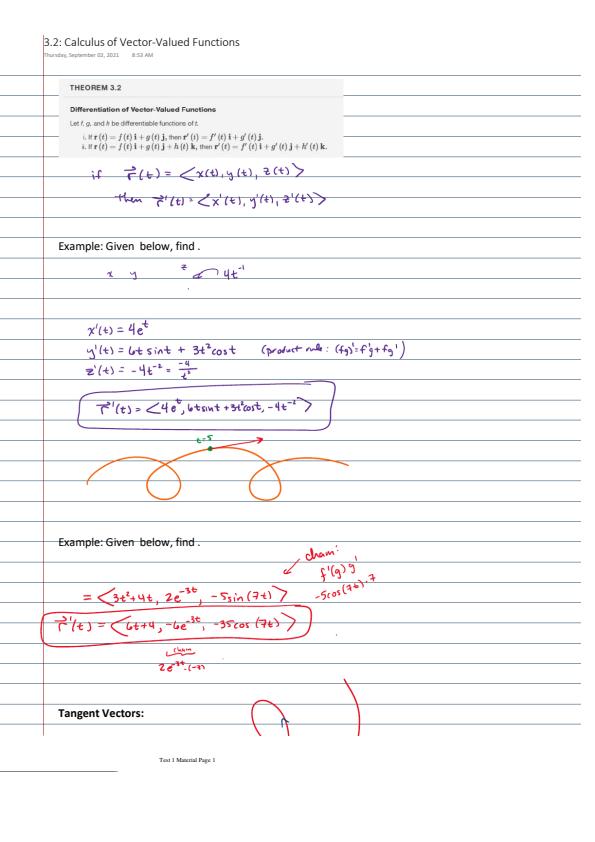 3.2: Calculus of Vector-Valued Functions
Thursday, September 02, 2021 8:53 AM
THEOREM 3.2
Differentiation of Vector-Valued Functions
Let f, g, and h be differentiable functions of t.
i. If r (t) = f (t) i + g (t) j, then r′ (t) = f′ (t) i + g′ (t) j.
ii. If r (t) = f (t) i + g (t) j + h (t) k, then r′ (t) = f′ (t) i + g′ (t) j + h′ (t) k.
if r⃗(t) = <x(t), y(t), z(t)>
then r⃗'(t) = <x'(t), y'(t), z'(t)>
Example: Given below, find .
x y z 4t⁻¹
x'(t) = 4eᵗ
y'(t) = 6t sint + 3t²cost (product rule: (fg)'=f'g+fg')
z'(t) = -4t⁻² = -4/t²
r⃗'(t) = <4eᵗ, 6tsint+3t²cost, -4t⁻²>
t=5
Example: Given below, find .
chain:
f'(g) g'
-5cos(7t)·7
= <3t²+4t, 2e⁻³ᵗ, -5sin(7t)>
r⃗'(t) = <6t+4, -6e⁻³ᵗ, -35cos(7t)>
chain
2e⁻³ᵗ·(-3)
Tangent Vectors:
Test 1 Material Page 1